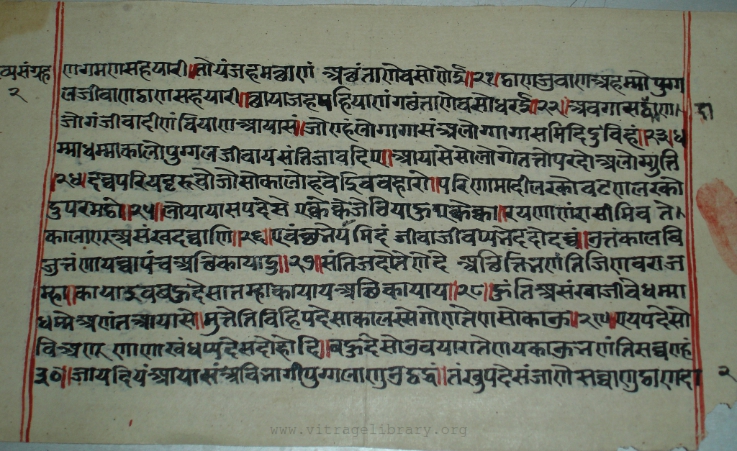 व्यसंग्रह
२
णगमणसहयारी।तोयंजहमच्छाणं अच्छंताणेवसोणेई।२१।ठाणजुवाणअहम्मोपुग्ग
लजीवाणठाणसहयारी।छायाजहपहियाणंगछंताणेवसोधरई।२२।अवगासदाण
जोगंजीवादीणंवियाणआयासं।जोण्हंलोगागासंअलोगागासमिदिदुविहं।२३।ध
म्माधम्माकालोपुग्गलजीवायसंतिजावदिए।आयासेसोलोगोतत्तोपरदोअलोगुत्ति
।२४।दव्वपरियट्टरूवोजोसोकालोहवेइववहारो।परिणामादीलरकोवट्टणालरको
दुपरमठो।२५।लोयायासपदेसे एक्केक्केजेठियाहुएक्केक्का।रयणाणंरासीमिव ते
कालाणूअसंखदव्वाणि।२६।एवंछभेयमिदं जीवाजीवप्पभेददोदव्वं।उत्तंकालवि
जुत्तंणायव्वापंचअत्थिकायादु।२७।संतिजदोतेणेदे अत्थित्तिभणंतिजिणवराज
म्हा।कायाइवबहुदेसातम्हाकायायअत्थिकायाय।२८।हुंतिअसंखाजीवेधम्मा
धम्मेअणंतआयासे।मुत्तेतिविहपदेसाकालस्सेगोणतेणसोकाऊ।२९।एयपदेसो
विअणूणाणाखंधप्पदेसदोहोदि।बहुदेसोउवयारातेणयकाऊभणंतिसव्वण्हं
३०।जावदियंआयासंअविभागीपुग्गलाणुउट्ठद्धं।तंखुपदेसंजाणेसव्वाणुठाणदा
२
www.vitragelibrary.org